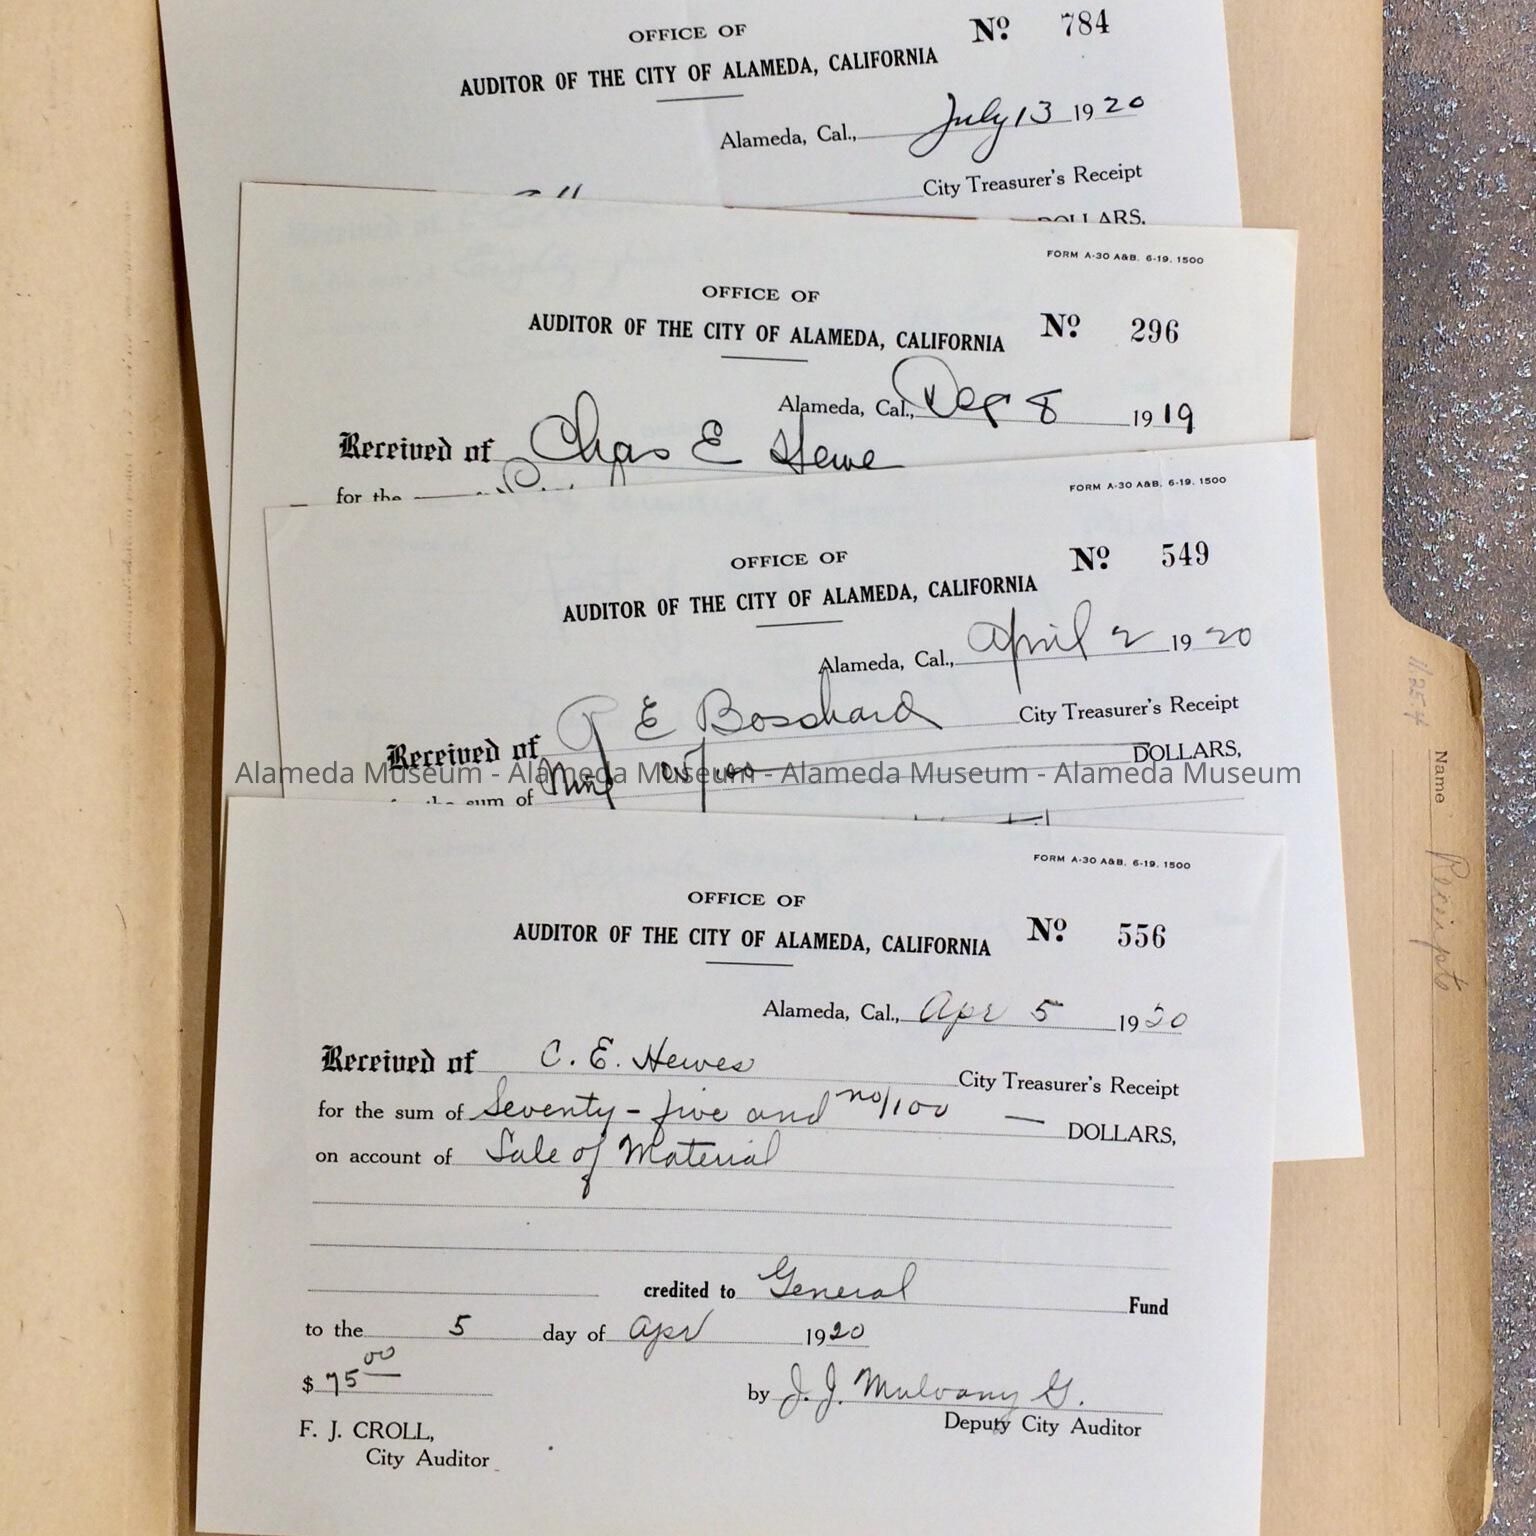 OFFICE OF
AUDITOR OF THE CITY OF ALAMEDA, CALIFORNIA
No. 784
Alameda, Cal., July 13 1920
City Treasurer's Receipt
DOLLARS,
FORM A-30 A&B. 6-19. 1500
OFFICE OF
AUDITOR OF THE CITY OF ALAMEDA, CALIFORNIA
No. 296
Alameda, Cal., 8 1919
Received of Chas E Hewe
for the
FORM A-30 A&B. 6-19. 1500
OFFICE OF
AUDITOR OF THE CITY OF ALAMEDA, CALIFORNIA
No. 549
Alameda, Cal., April 2 1920
Received of E Bosshard City Treasurer's Receipt
sum of Nine /100 DOLLARS,
Alameda Museum - Alameda Museum - Alameda Museum - Alameda Museum
FORM A-30 A&B. 6-19. 1500
OFFICE OF
AUDITOR OF THE CITY OF ALAMEDA, CALIFORNIA
No. 556
Alameda, Cal., Apr 5 1920
Received of C. E. Hewes City Treasurer's Receipt
for the sum of Seventy-five and no/100 — DOLLARS,
on account of Sale of Material
credited to General Fund
to the 5 day of Apr 1920
$ 75 00
by J. J. Mulvany
Deputy City Auditor
F. J. CROLL,
City Auditor
Name Receipts